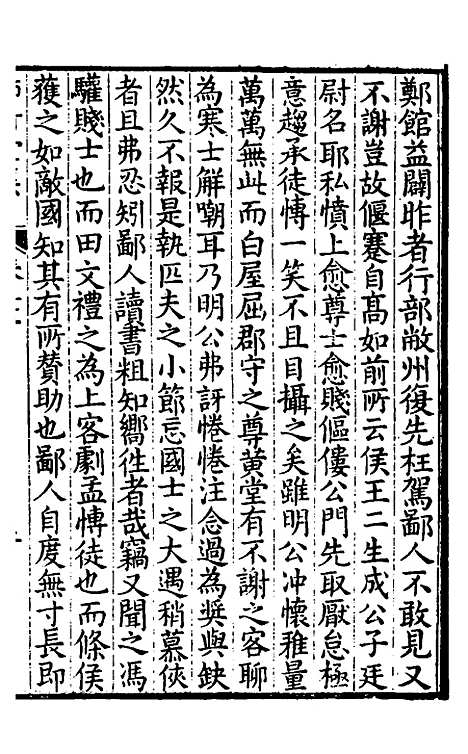 鄭館益闢昨者行部敝州復先枉駕鄙人不敢見又
不謝豈故偃蹇自高如前所云侯王二生成公子廷
尉名耶私憤上愈尊士愈賤傴僂公門先取厭怠極
意趨承徒慱一笑不且目攝之矣雖明公冲懷雅量
萬萬無此而白屋屈郡守之尊黄堂有不謝之客聊
為寒士解嘲耳乃明公弗訝惓惓注念過為奨與鈌
然久不報是執匹夫之小節忘國士之大遇稍慕俠
者且弗忍矧鄙人讀書粗知嚮徃者哉竊又聞之馮
驩賤士也而田文禮之為上客劇孟慱徒也而條侯
蒦之如敵國知其有所賛助也鄙人自度無寸長即